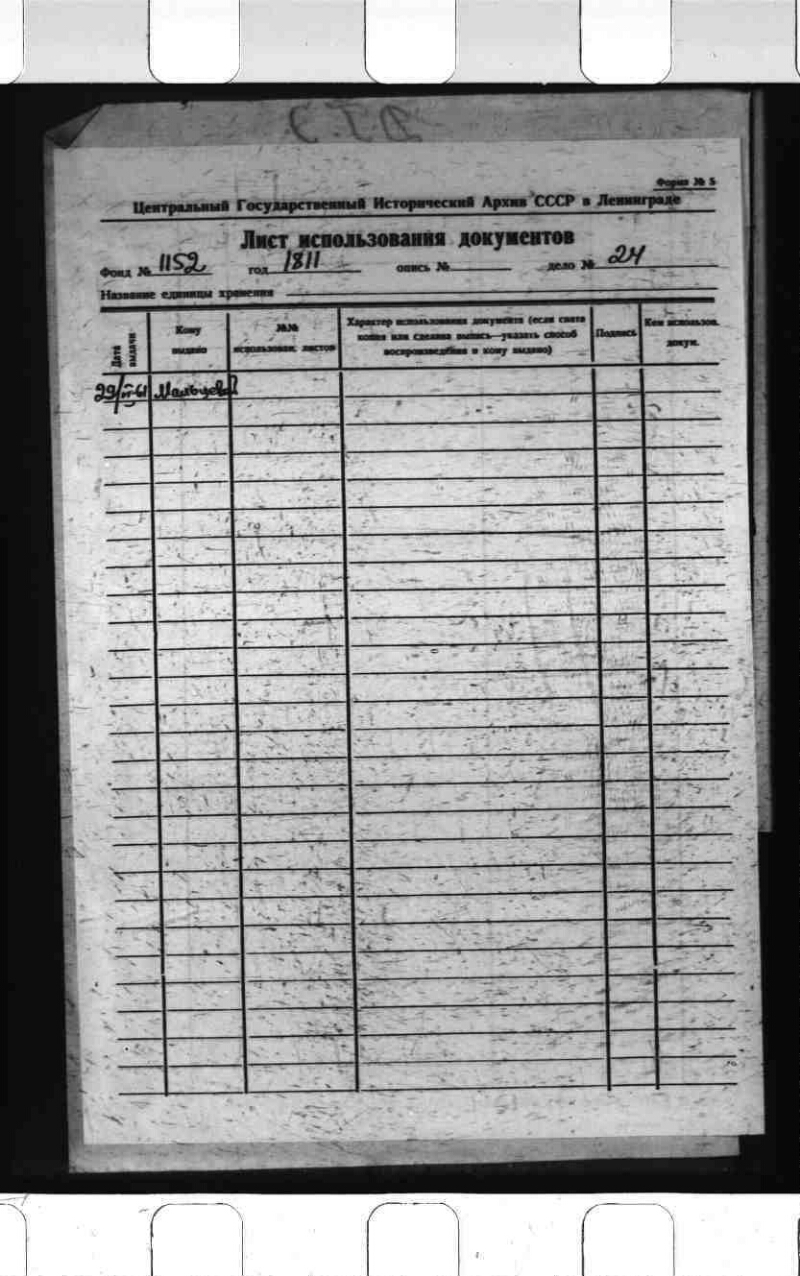 Форма № 5
Центральный Государственный Исторический Архив СССР в Ленинграде
Лист использования документов
Фонд № 1152 год 1811 опись № дело № 24
Название единицы хранения
Дата выдачи
Кому выдано
№№ использован. листов
Характер использования документа (если снята копия или сделана выпись—указать способ воспроизведения и кому выдано)
Подпись
Кем использов. докум.
29/VI-61 Мальцева